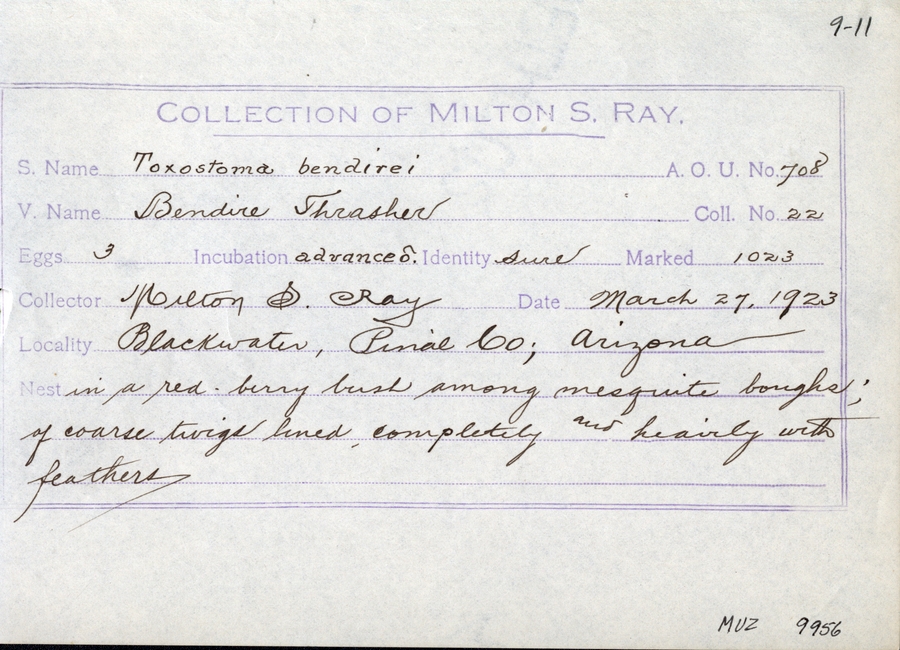 9-11
COLLECTION OF MILTON S. RAY.
S. Name Toxostoma bendirei A. O. U. No. 708
V. Name Bendire Thrasher Coll. No. 22
Eggs 3 Incubation advanced. Identity sure Marked 1023
Collector Milton S. Ray Date March 27, 1923
Locality Blackwater, Pinal Co; Arizona
Nest in a red-berry bush among mesquite boughs;
of coarse twigs lined, completely and heavily with
feathers
MVZ 9956